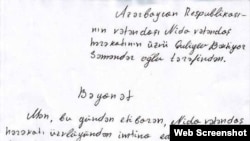 Azərbaycan Respublikası-
nın vətəndaşı Nida vətəndaş
hərəkatının üzvü Quliyev Bəhtiyar
Səməndər oğlu tərəfindən.
Bəyanat
Mən, bu gündən etibarən, Nida vətəndaş
hərəkatı üzvlüyündən imtina ed
Web Screenshot